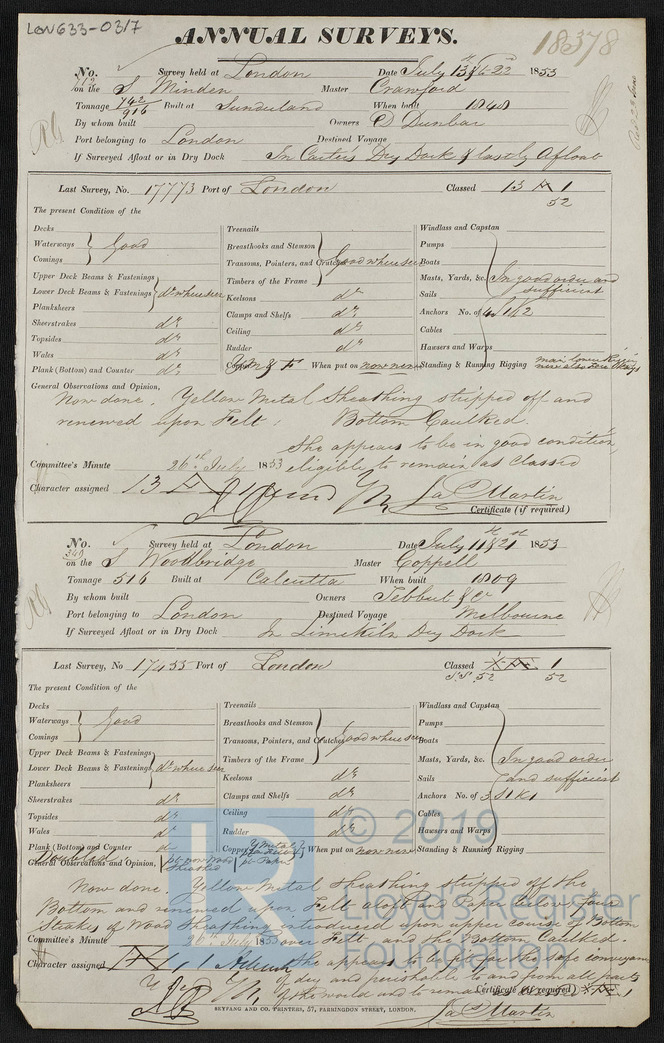 LON633-0317
ANNUAL SURVEYS.
18378
No. 712 Survey held at London Date July 13 & 22 1853
on the S Minden Master Crawford
Tonnage 742/916 Built at Sunderland When built 1848
By whom built Owners D Dunbar
Port belonging to London Destined Voyage
If Surveyed Afloat or in Dry Dock In Carter's Dry Dock & lastly Afloat
Last Survey, No. 17773 Port of London Classed 13 A 1
52
The present Condition of the
Decks
Waterways Good
Comings
Upper Deck Beams & Fastenings
Lower Deck Beams & Fastenings do where seen
Planksheers
Sheerstrakes do
Topsides do
Wales do
Plank (Bottom) and Counter do
Treenails
Breasthooks and Stemson
Transoms, Pointers, and Crutches Good where seen
Timbers of the Frame
Keelsons do
Clamps and Shelfs do
Ceiling do
Rudder do
Copper YM & F When put on now new
Windlass and Capstan
Pumps
Boats
Masts, Yards, &c. In good order and
Sails sufficient
Anchors No. of 4 S 1 K 2
Cables
Hawsers and Warps
Standing & Running Rigging main lower Rigging
General Observations and Opinion,
Now done. Yellow Metal Sheathing stripped off and
renewed upon Felt: Bottom Caulked.
She appears to be in good condition
eligible to remain as Classed
Committee's Minute 26th July 1853
Character assigned 13 A 1
Jas Martin
Certificate (if required)
No. 340 Survey held at London Date July 11 & 21st 1853
on the S Woodbridge Master Coppell
Tonnage 516 Built at Calcutta When built 1809
By whom built Owners Tebbut & Co
Port belonging to London Destined Voyage Melbourne
If Surveyed Afloat or in Dry Dock In Limekiln Dry Dock
Last Survey, No 17455 Port of London Classed 1
S.S. 52 52
The present Condition of the
Decks
Waterways Good
Comings
Upper Deck Beams & Fastenings
Lower Deck Beams & Fastenings do where seen
Planksheers
Sheerstrakes do
Topsides do
Wales do
Plank (Bottom) and Counter do
Doubled
Treenails
Breasthooks and Stemson
Transoms, Pointers, and Crutches Good where seen
Timbers of the Frame
Keelsons do
Clamps and Shelfs do
Ceiling do
Rudder do
Copper Y Metal When put on now new
Windlass and Capstan
Pumps
Boats
Masts, Yards, &c. In good order
Sails and sufficient
Anchors No. of 3 S 1 K 1
Cables
Hawsers and Warps
Standing & Running Rigging
General Observations and Opinion,
Now done. Yellow Metal Sheathing stripped off the
Bottom and renewed upon Felt aloft and Paper below, Four
Strakes of Wood Sheathing introduced upon upper course of Bottom
over Felt and the Bottom Caulked.
Committee's Minute 26th July 1853
Character assigned
She appears to be fit for the safe conveyance
of dry and perishable to and from all parts
of the world and to remain as classed
Certificate (if required)
Jas Martin
SEYFANG AND CO. PRINTERS, 57, FARRINGDON STREET, LONDON.
© 2019
Lloyd's Register
Foundation
LR